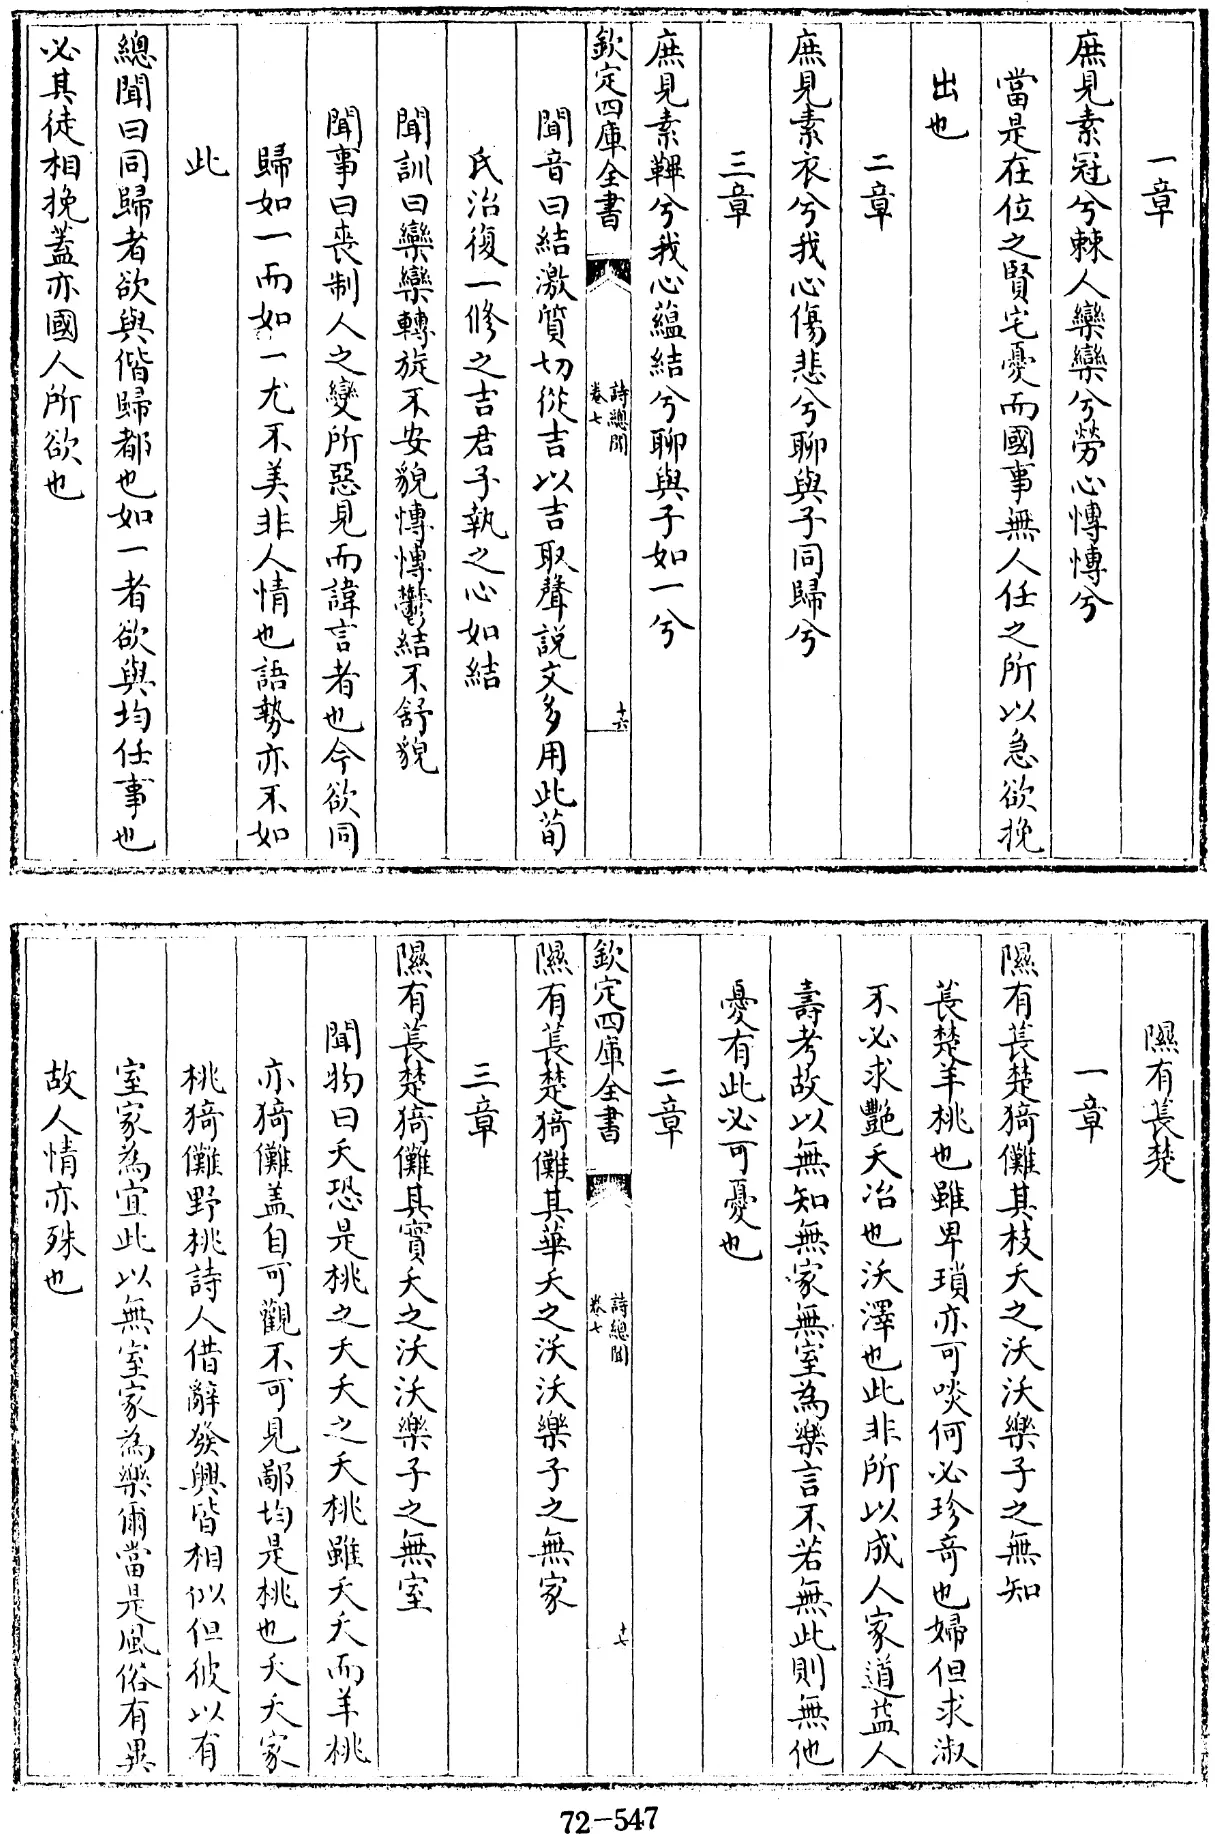 一章
庶見素冠兮棘人欒欒兮勞心慱慱兮
當是在位之賢宅憂而國事無人任之所以急欲挽
出也
二章
庶見素衣兮我心傷悲兮聊與子同歸兮
三章
庶見素韠兮我心蘊結兮聊與子如一兮
欽定四庫全書 詩總聞 卷七 十六
聞音曰結激質切從吉以吉取聲説文多用此荀
氏治復一修之吉君子執之心如結
聞訓曰欒欒轉旋不安貌慱慱鬱結不舒貌
聞事曰喪制人之變所惡見而諱言者也今欲同
歸如一而如一尤不美非人情也語勢亦不如
此
總聞曰同歸者欲與偕歸都也如一者欲與均任事也
必其徒相挽蓋亦國人所欲也
隰有萇楚
一章
隰有萇楚猗儺其枝夭之沃沃樂子之無知
萇楚羊桃也雖卑瑣亦可啖何必珍奇也婦但求淑
不必求艷夭冶也沃澤也此非所以成人家道益人
壽考故以無知無家無室為樂言不若無此則無他
憂有此必可憂也
二章
隰有萇楚猗儺其華夭之沃沃樂子之無家
欽定四庫全書 詩總聞 卷七 十七
三章
隰有萇楚猗儺其實夭之沃沃樂子之無室
聞物曰夭恐是桃之夭夭之夭桃雖夭夭而羊桃
亦猗儺盖自可觀不可見鄙均是桃也夭夭家
桃猗儺野桃詩人借辭發興皆相似但彼以有
室家為宜此以無室家為樂爾當是風俗有異
故人情亦殊也
72-547